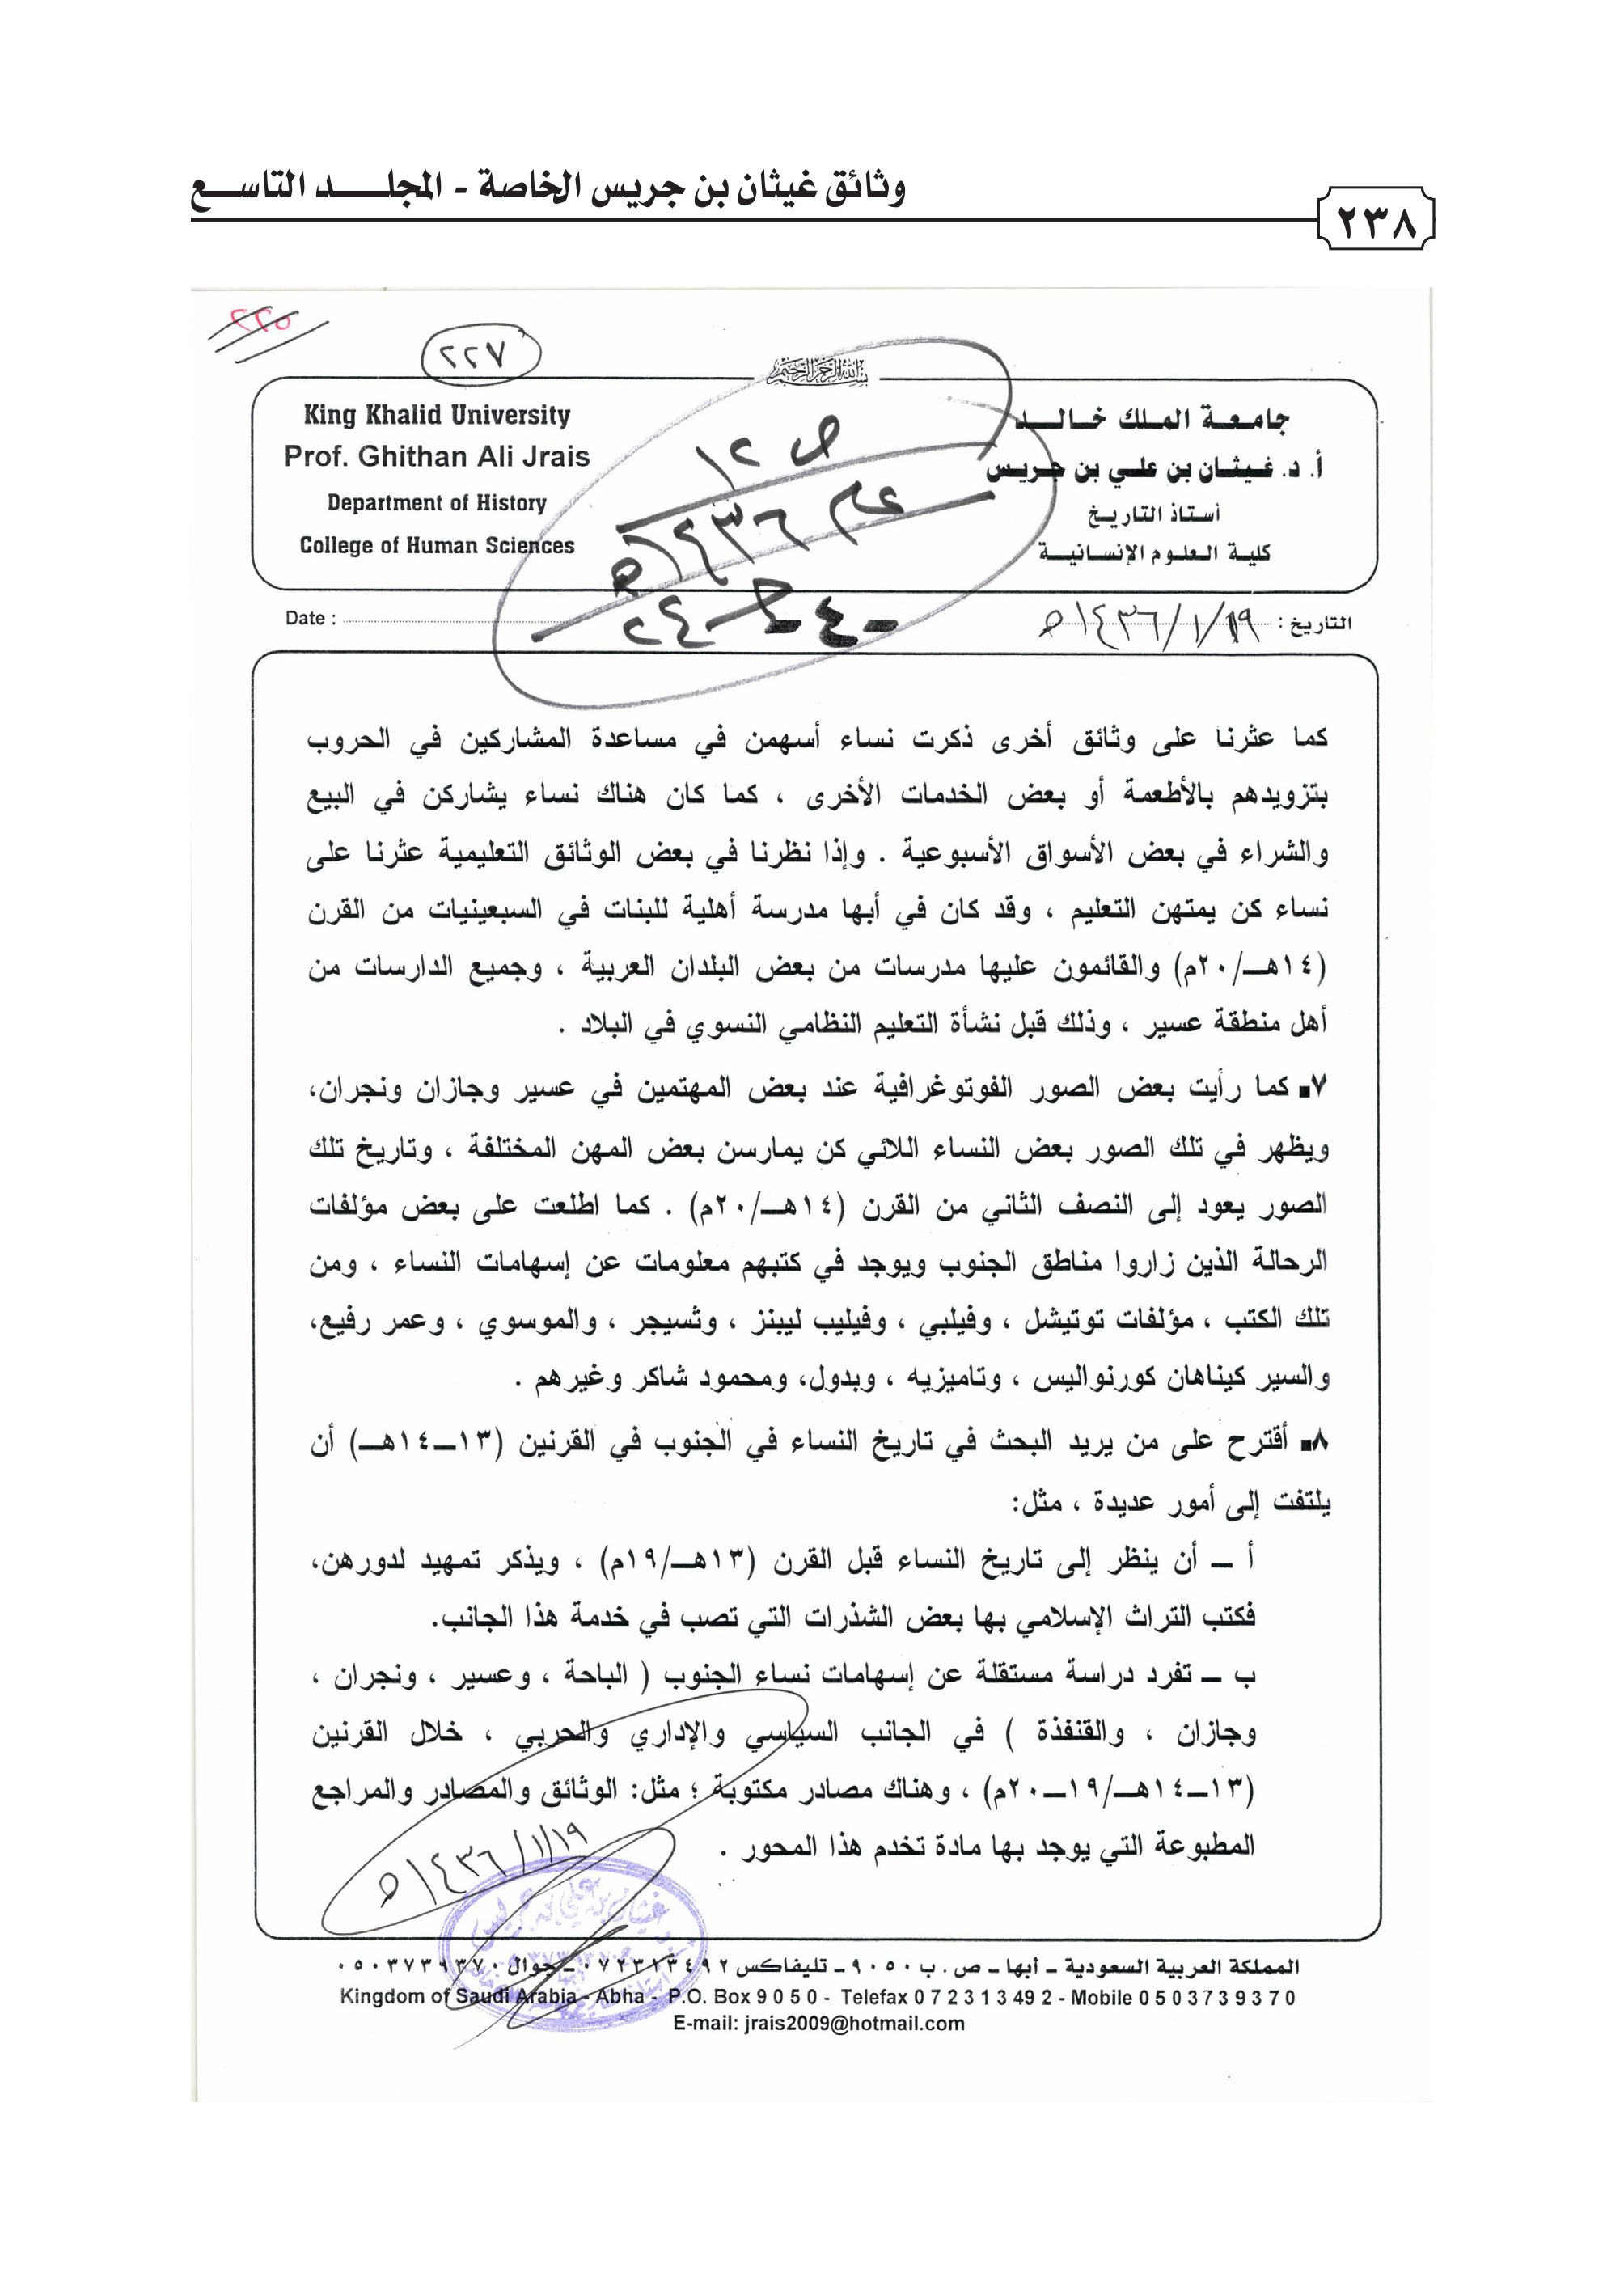 وثائق غيثان بن جريس الخاصة - المجلـــــد التاســـع
٢٣٨
٢٢٥
٢٢٧
بسم الله الرحمن الرحيم
جامـعـة الـملـك خـالـــد
أ. د. غـيـثـان بن علـي بن جريـس
أسـتـاذ التاريـخ
كليـة الـعلـوم الإنـسـانيــة
King Khalid University
Prof. Ghithan Ali Jrais
Department of History
College of Human Sciences
ص ١٢
١٤٣٦هـ
- ٤ -
التاريخ : ١٤٣٦/١/١٩هـ
Date :
كما عثرنا على وثائق أخرى ذكرت نساء أسهمن في مساعدة المشاركين في الحروب
بتزويدهم بالأطعمة أو بعض الخدمات الأخرى ، كما كان هناك نساء يشاركن في البيع
والشراء في بعض الأسواق الأسبوعية . وإذا نظرنا في بعض الوثائق التعليمية عثرنا على
نساء كن يمتهن التعليم ، وقد كان في أبها مدرسة أهلية للبنات في السبعينيات من القرن
(١٤هــ/٢٠م) والقائمون عليها مدرسات من بعض البلدان العربية ، وجميع الدارسات من
أهل منطقة عسير ، وذلك قبل نشأة التعليم النظامي النسوي في البلاد .
٧. كما رأيت بعض الصور الفوتوغرافية عند بعض المهتمين في عسير وجازان ونجران،
ويظهر في تلك الصور بعض النساء اللائي كن يمارسن بعض المهن المختلفة ، وتاريخ تلك
الصور يعود إلى النصف الثاني من القرن (١٤هــ/٢٠م) . كما اطلعت على بعض مؤلفات
الرحالة الذين زاروا مناطق الجنوب ويوجد في كتبهم معلومات عن إسهامات النساء ، ومن
تلك الكتب ، مؤلفات توتيشل ، وفيلبي ، وفيليب ليبنز ، وثسيجر ، والموسوي ، وعمر رفيع،
والسير كيناهان كورنواليس ، وتاميزيه ، وبدول، ومحمود شاكر وغيرهم .
٨. أقترح على من يريد البحث في تاريخ النساء في الجنوب في القرنين (١٣ــ١٤هــ) أن
يلتفت إلى أمور عديدة ، مثل:
أ ــ أن ينظر إلى تاريخ النساء قبل القرن (١٣هــ/١٩م) ، ويذكر تمهيد لدورهن،
فكتب التراث الإسلامي بها بعض الشذرات التي تصب في خدمة هذا الجانب.
ب ــ تفرد دراسة مستقلة عن إسهامات نساء الجنوب ( الباحة ، وعسير ، ونجران ،
وجازان ، والقنفذة ) في الجانب السياسي والإداري والحربي ، خلال القرنين
(١٣ــ١٤هــ/١٩ــ٢٠م) ، وهناك مصادر مكتوبة ؛ مثل: الوثائق والمصادر والمراجع
المطبوعة التي يوجد بها مادة تخدم هذا المحور .
١٤٣٦/١/١٩هـ
المملكة العربية السعودية – أبها – ص. ب ٩٠٥٠ – تليفاكس ٠٧٢٣١٣٤٩٢ – جوال ٠٥٠٣٧٣٩٣٧٠
Kingdom of Saudi Arabia - Abha - P.O. Box 9 0 5 0 - Telefax 0 7 2 3 1 3 49 2 - Mobile 0 5 0 3 7 3 9 3 7 0
E-mail: jrais2009@hotmail.com